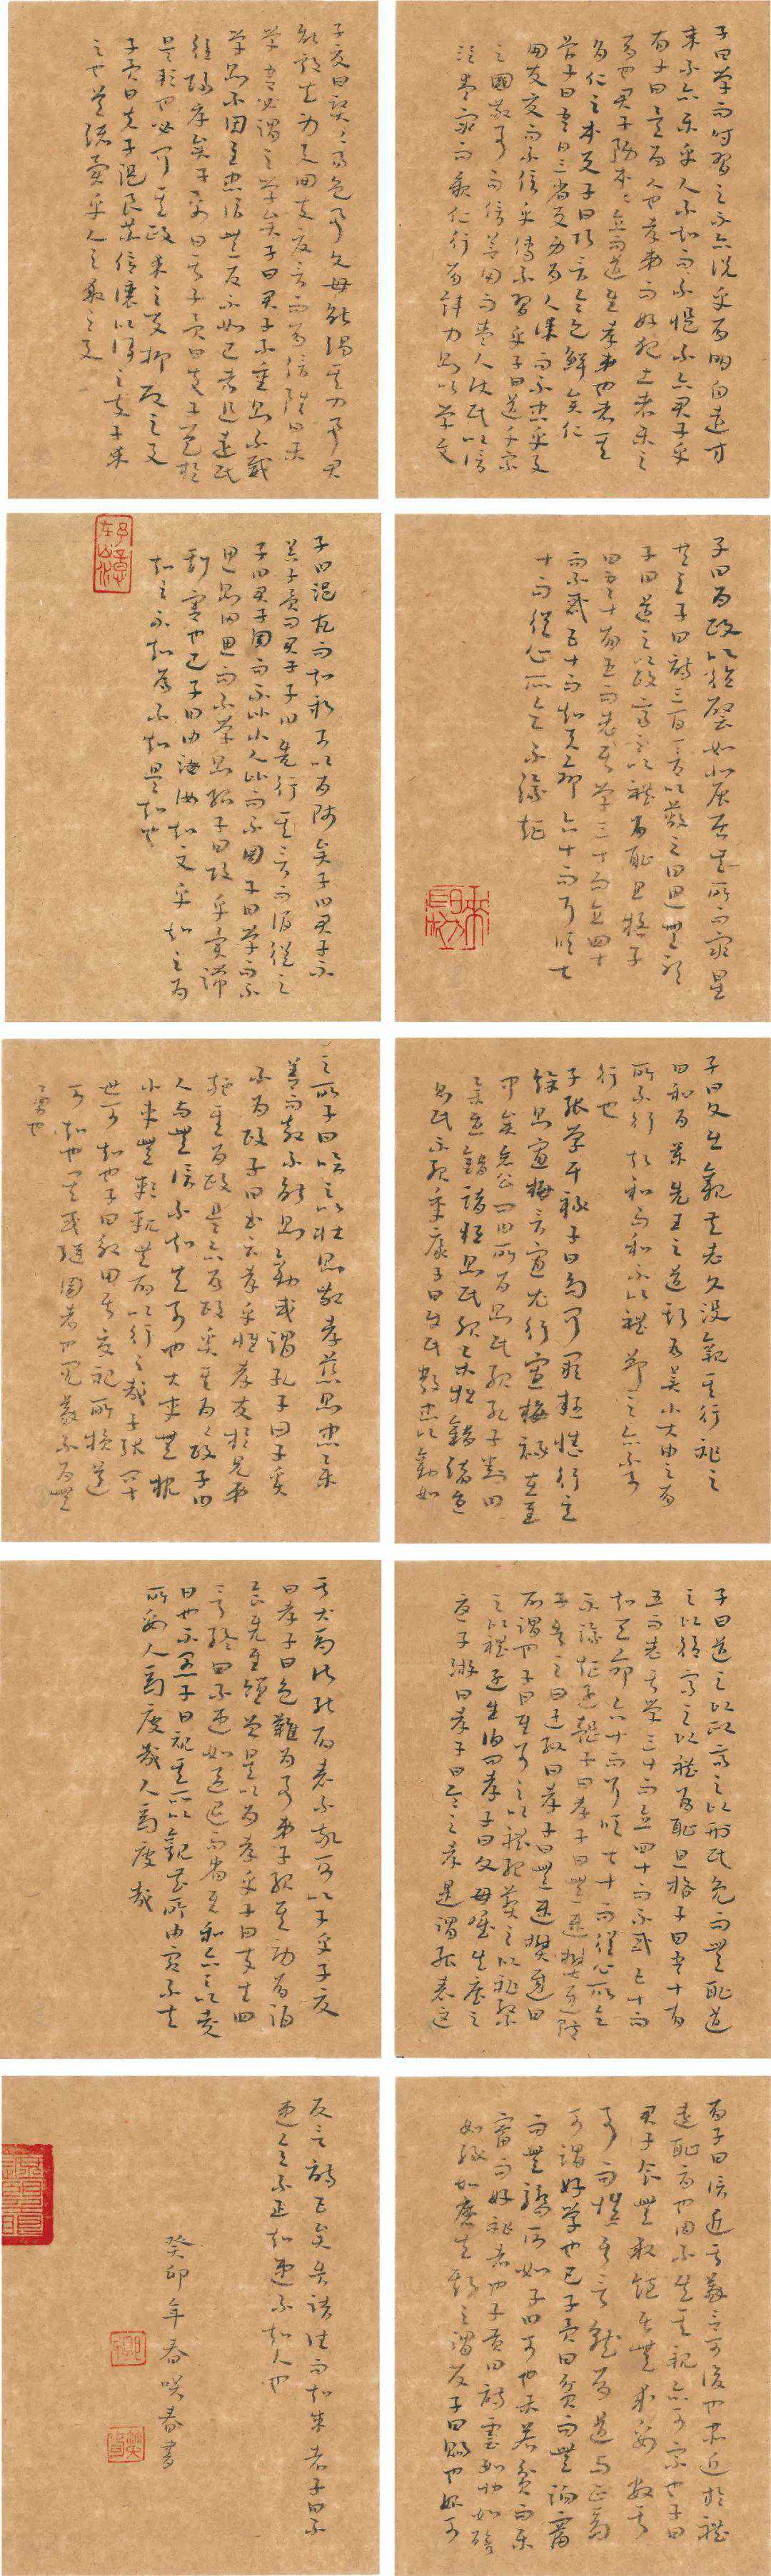 子曰學而時習之不亦說乎有朋自遠方
來不亦樂乎人不知而不慍不亦君子乎
有子曰其為人也孝弟而好犯上者未之
有也君子務本〻立而道生孝弟也者其
為仁之本與子曰巧言令色鮮矣仁
曾子曰吾日三省吾身為人謀而不忠乎與
朋友交而不信乎傳不習乎子曰道千乘
之國敬事而信節用而愛人使民以時
汎愛眾而親仁行有餘力則以學文
子夏曰賢〻易色事父母能竭其力事君
能致其身與朋友交言而有信雖曰未
學吾必謂之學矣子曰君子不重則不威
學則不固主忠信無友不如己者追遠民
德歸厚矣子禽曰於子貢曰夫子至於
是邦也必聞其政求之與抑與之與
子貢曰夫子溫良恭儉讓以得之夫子求
之也其諸異乎人之求之與
子曰為政以德譬如北辰居其所而眾星
共之子曰詩三百一言以蔽之曰思無邪
子曰道之以政齊之以禮有恥且格子
曰吾十有五而志于學三十而立四十
而不惑五十而知天命六十而耳順七
十而從心所欲不踰矩
子曰溫故而知新可以為師矣子曰君子不
器子貢問君子子曰先行其言而後從之
子曰君子周而不比小人比而不周子曰學而不
思則罔思而不學則殆子曰攻乎異端
斯害也已子曰由誨汝知之乎知之為
知之不知為不知是知也
子曰父在觀其志父沒觀其行禮之
用和為貴先王之道斯為美小大由之有
所不行知和而和不以禮節之亦不可
行也
子張學干祿子曰多聞闕疑慎行其
餘則寡悔言寡尤行寡悔祿在其
中矣哀公問曰何為則民服孔子對曰
舉直錯諸枉則民服舉枉錯諸直
則民不服季康子曰使民敬忠以勸如
之何子曰臨之以莊則敬孝慈則忠舉
善而教不能則勸或謂孔子曰子奚
不為政子曰書云孝乎惟孝友於兄弟
施於有政是亦為政奚其為〻政子曰
人而無信不知其可也大車無輗
小車無軏其何以行之哉子張問十
世可知也子曰殷因于夏禮所損益
可知也其或繼周者也見義不為無
勇也
子曰道之以政齊之以刑民免而無恥道
之以德齊之以禮有恥且格子曰吾十有
五而志于學三十而立四十而不惑五十而
知天命六十而耳順七十而從心所欲
不踰矩孟懿子曰孝子曰無違樊遲御
子告之曰孟孫曰孝子曰無違樊遲曰
何謂也子曰生事之以禮死葬之以禮祭
之以禮孟武伯曰孝子曰父母唯其疾之
憂子游曰孝子曰今之孝是謂能養至
於犬馬皆能有養不敬何以別乎子夏
曰孝子曰色難有事弟子服其勞有酒
食先生饌曾是以為孝乎子曰吾與回
言終日不違如愚退而省其私亦足以發
回也不愚子曰視其所以觀其所由察其
所安人焉廋哉人焉廋哉
有子曰信近於義言可復也恭近於禮
遠恥辱也因不失其親亦可宗也子曰
君子食無求飽居無求安敏於
事而慎於言就有道而正焉
可謂好學也已子貢曰貧而無諂富
而無驕何如子曰可也未若貧而樂
富而好禮者也子貢曰詩云如切如磋
如琢如磨其斯之謂與子曰賜也始可
與言詩已矣告諸往而知來者子曰不
患人之不己知患不知人也
癸卯年春咲春書